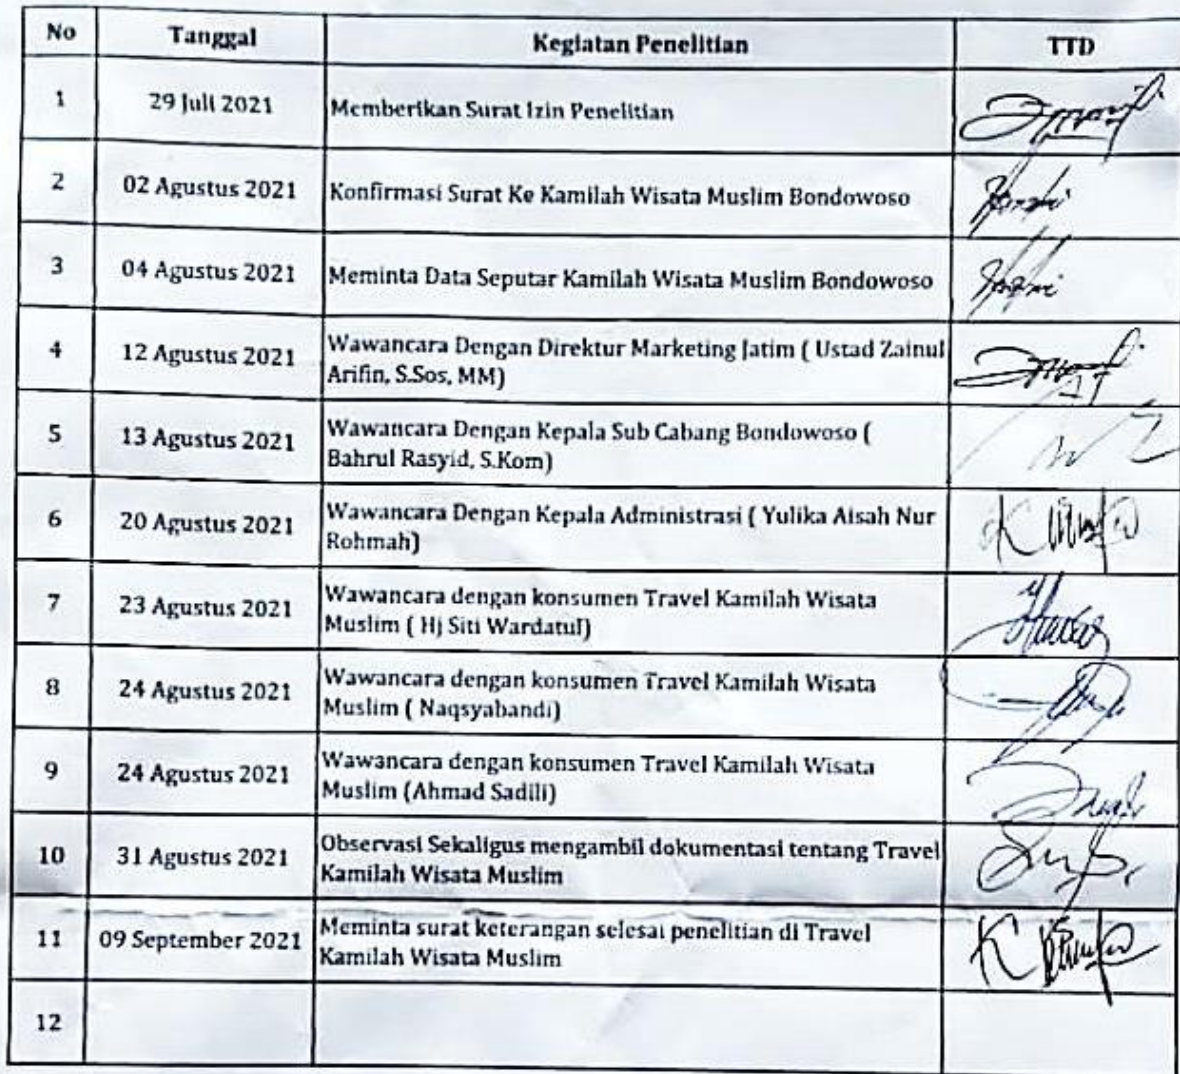 No Tanggal Kegiatan Penelitian TTD
1 29 Juli 2021 Memberikan Surat Izin Penelitian
2 02 Agustus 2021 Konfirmasi Surat Ke Kamilah Wisata Muslim Bondowoso
3 04 Agustus 2021 Meminta Data Seputar Kamilah Wisata Muslim Bondowoso
4 12 Agustus 2021 Wawancara Dengan Direktur Marketing Jatim ( Ustad Zainul
Arifin, S.Sos, MM)
5 13 Agustus 2021 Wawancara Dengan Kepala Sub Cabang Bondowoso (
Bahrul Rasyid, S.Kom)
6 20 Agustus 2021 Wawancara Dengan Kepala Administrasi ( Yulika Aisah Nur
Rohmah)
7 23 Agustus 2021 Wawancara dengan konsumen Travel Kamilah Wisata
Muslim ( Hj Siti Wardatul)
8 24 Agustus 2021 Wawancara dengan konsumen Travel Kamilah Wisata
Muslim ( Naqsyabandi)
9 24 Agustus 2021 Wawancara dengan konsumen Travel Kamilah Wisata
Muslim (Ahmad Sadili)
10 31 Agustus 2021 Observasi Sekaligus mengambil dokumentasi tentang Travel
Kamilah Wisata Muslim
11 09 September 2021 Meminta surat keterangan selesai penelitian di Travel
Kamilah Wisata Muslim
12